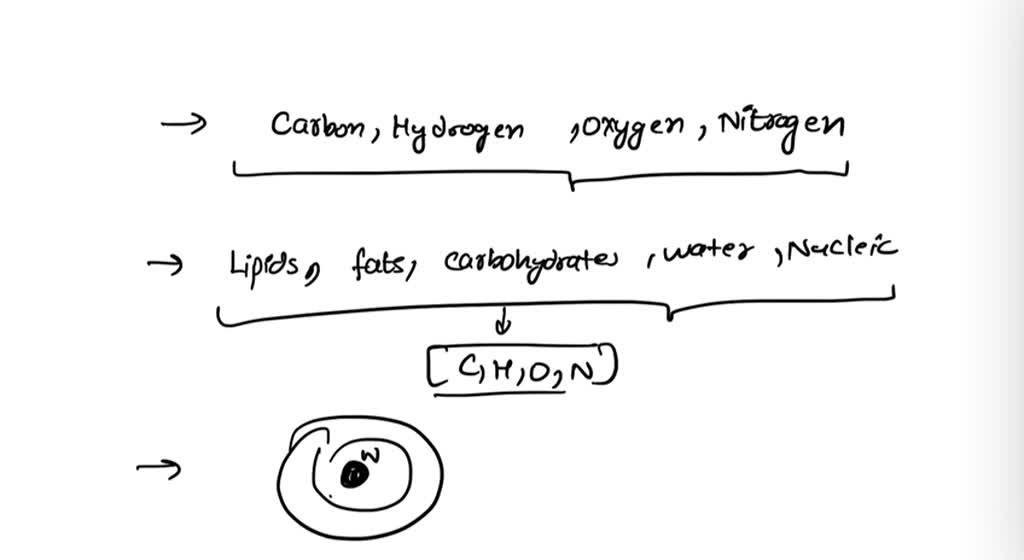 → Carbon, Hydrogen , Oxygen , Nitrogen
→ Lipids, fats, carbohydrates , water , Nucleic
[C, H, O, N]
→ N